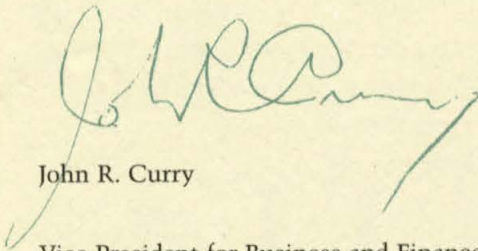 John R. Curry
John R. Curry
Vice President for Business and Finance